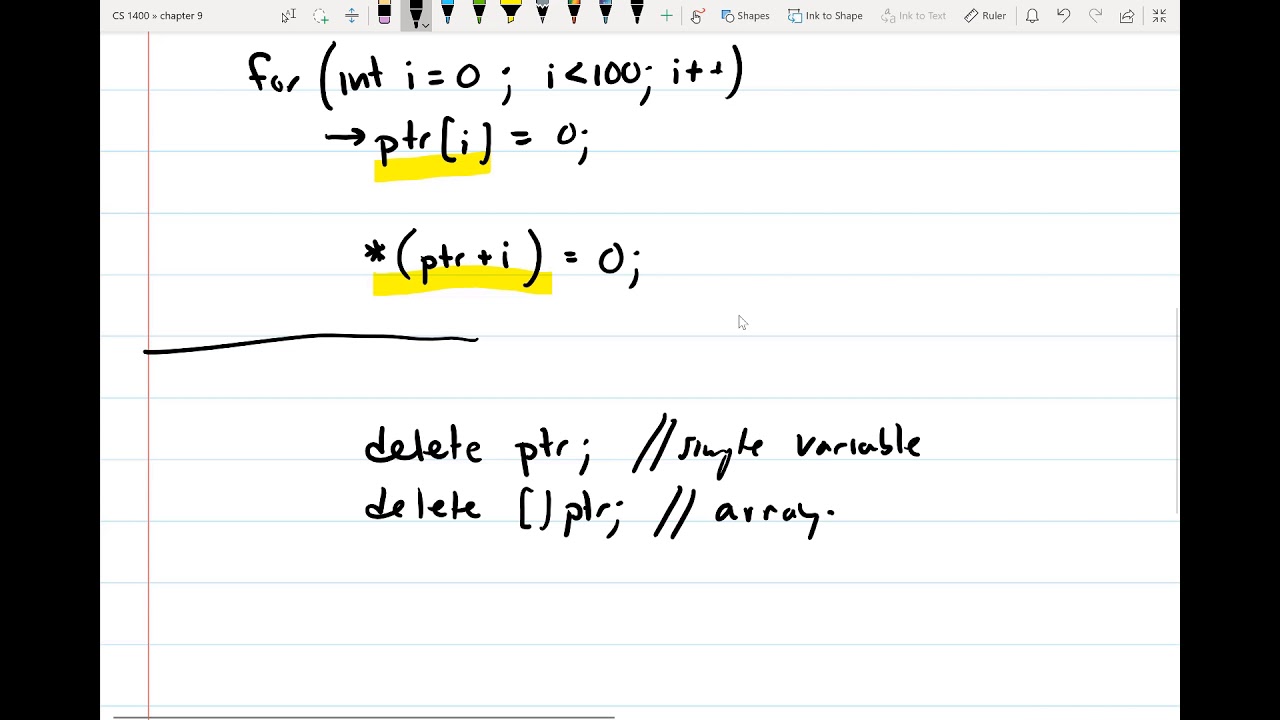 CS 1400 » chapter 9
Shapes
Ink to Shape
Ink to Text
Ruler
for (int i = 0 ; i < 100; i++)
→ ptr[i] = 0;
*(ptr + i) = 0;
delete ptr; // single variable
delete [] ptr; // array.